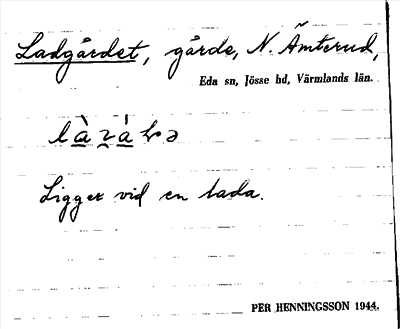 Ladgårdet, gårde, N. Ämterud,
Eda sn, Jösse hd, Värmlands län.
Ligger vid en lada.
PER HENNINGSSON 1944.